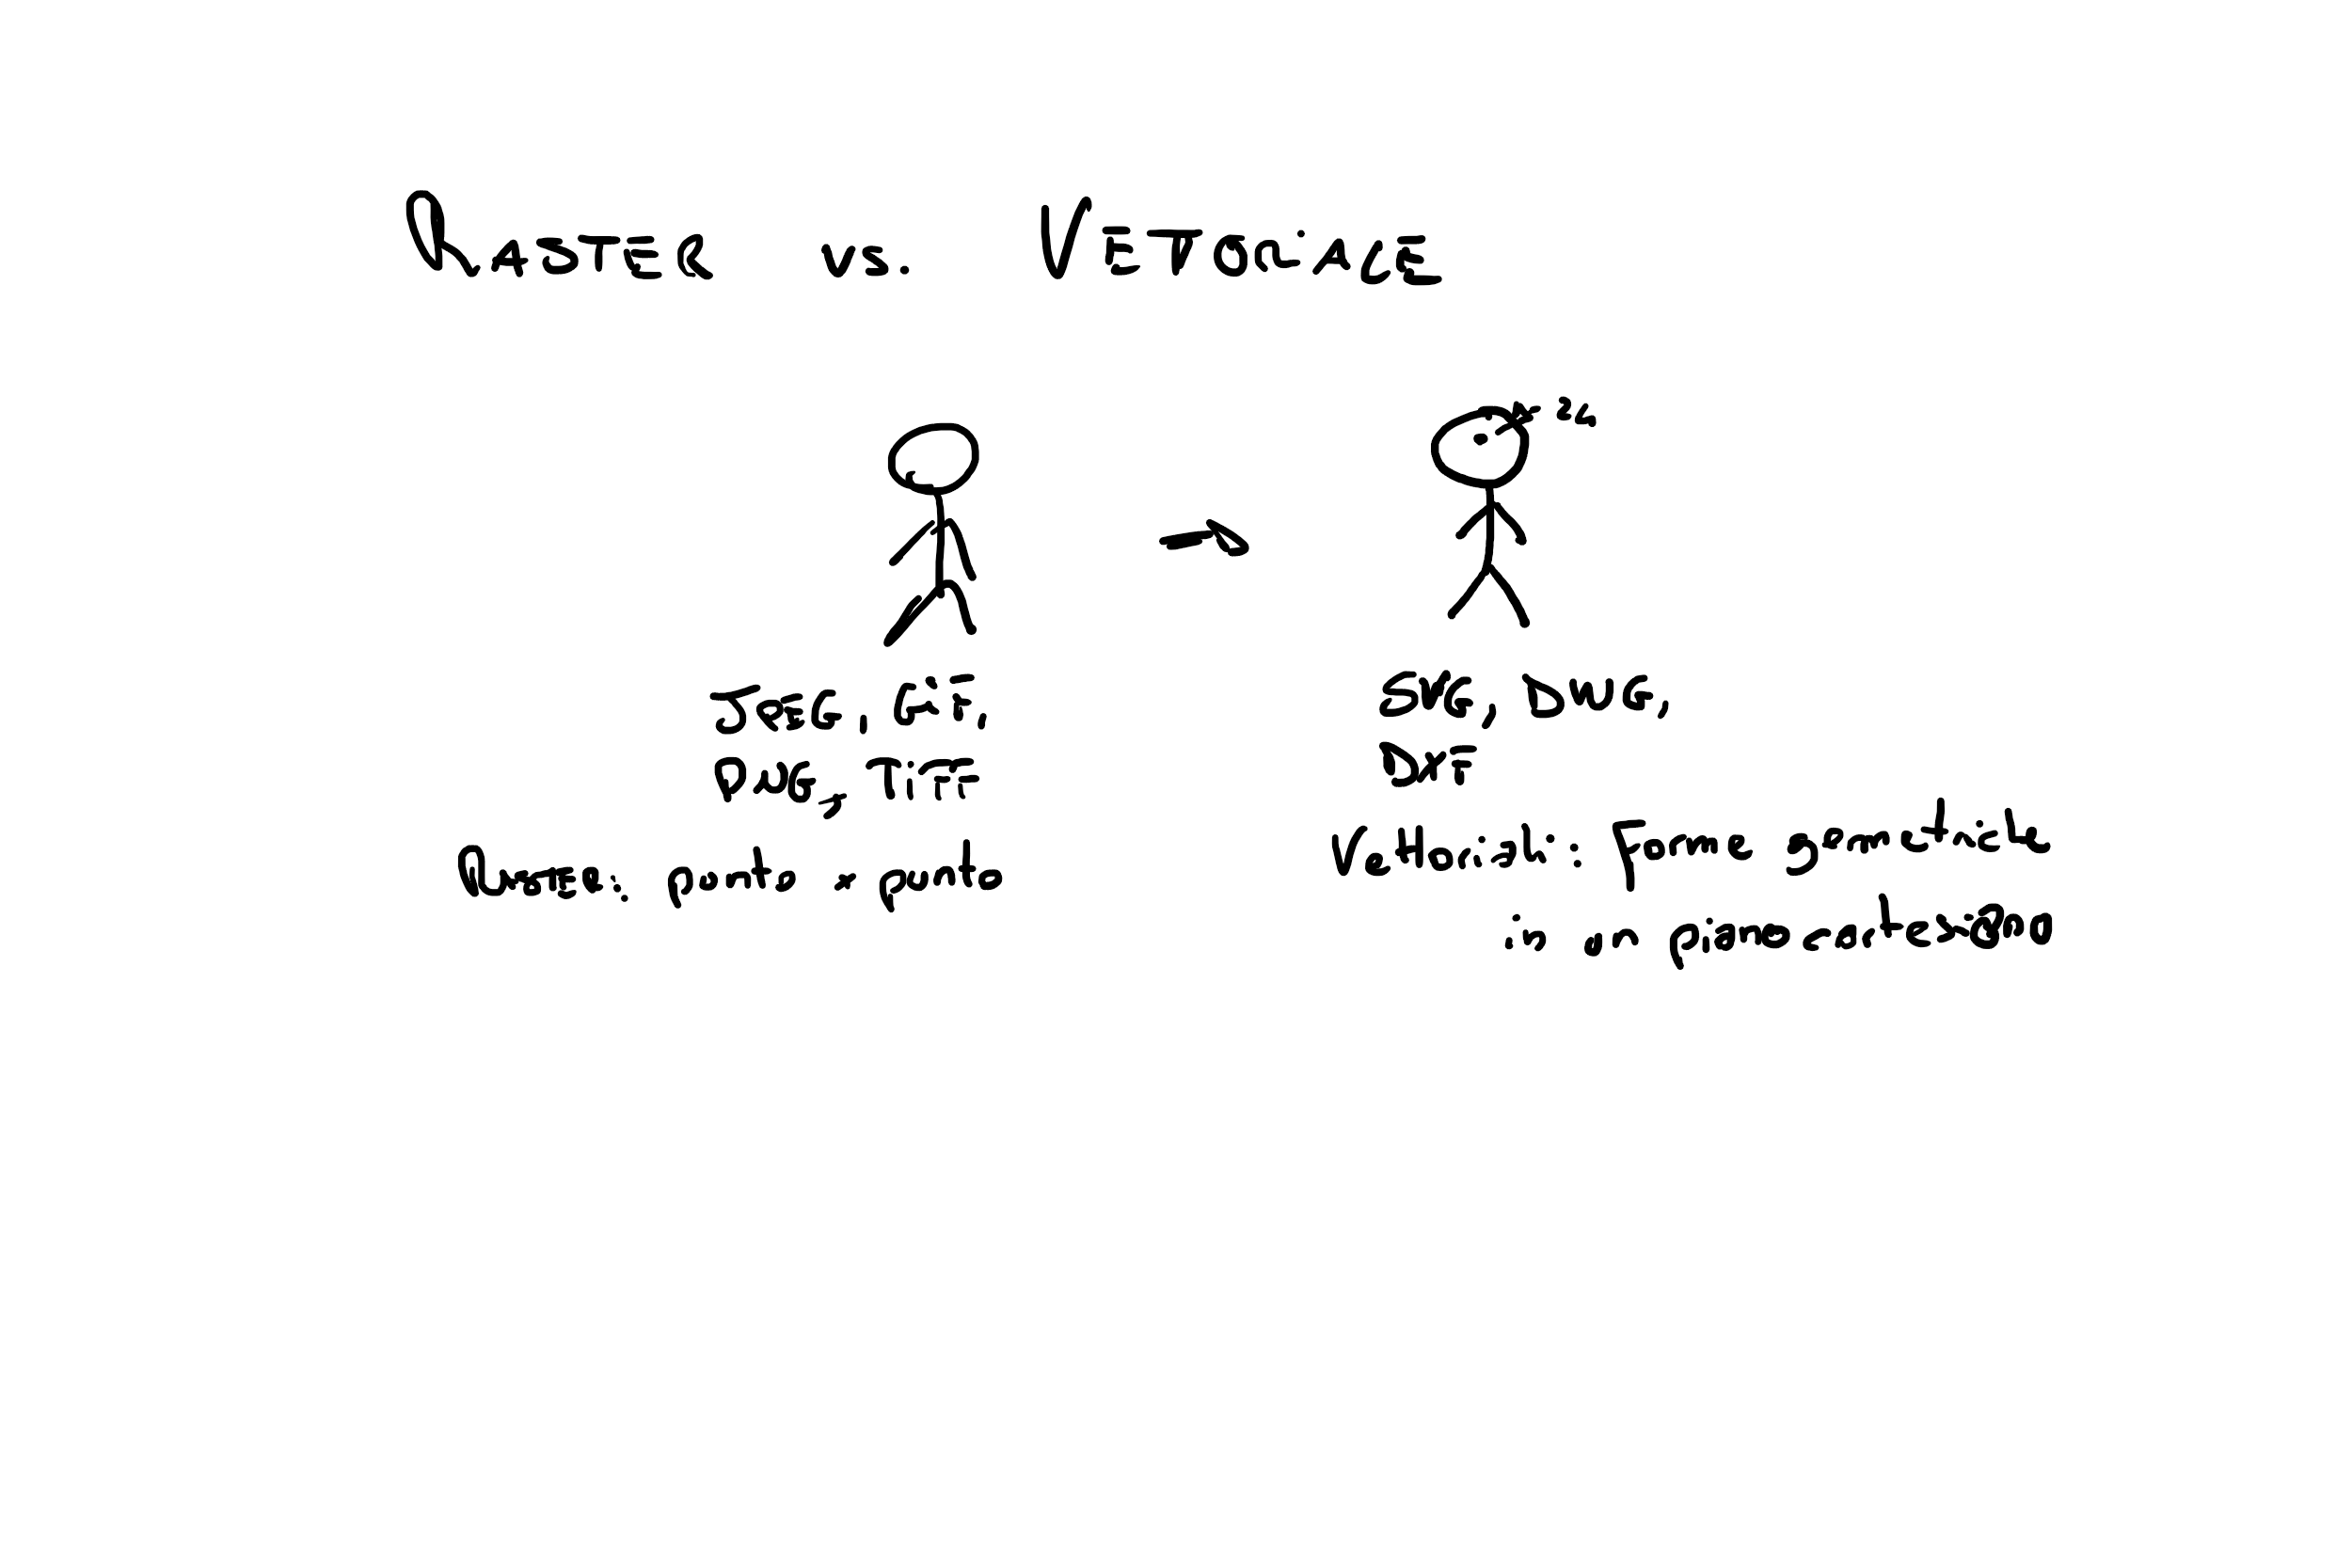 RASTER vs. VETTORIALE
24
JPEG, GiF,
DWG, TiFF
SVG, DWG,
DXF
RASTER: punto x punto
Vettoriali: Forme geometriche
in un piano cartesiano